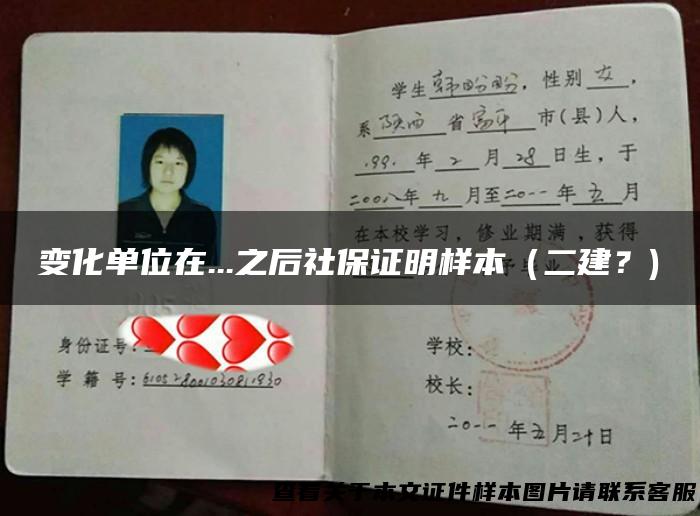 学生韩盼盼，性别女，
系陕西省富平市(县)人，
199.年2月28日生，于
二00八年九月至二0一一年五月
在本校学习，修业期满，获得
变化单位在...之后社保证明样本（二建？）
身份证号：
学籍号：
学校：
校长：
二0一一年五月二十日
查看关于本文证件样本图片请联系客服